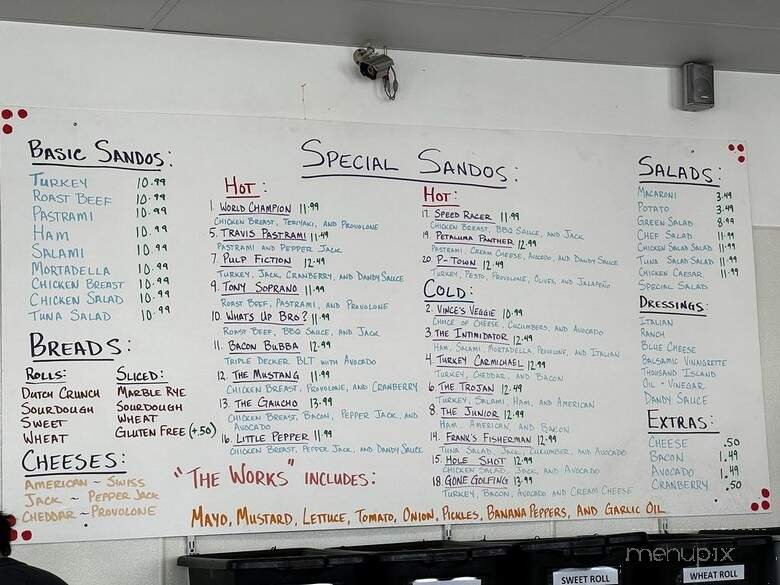 BASIC SANDOS:
TURKEY 10.99
ROAST BEEF 10.99
PASTRAMI 10.99
HAM 10.99
SALAMI 10.99
MORTADELLA 10.99
CHICKEN BREAST 10.99
CHICKEN SALAD 10.99
TUNA SALAD 10.99
BREADS:
ROLLS: SLICED:
DUTCH CRUNCH MARBLE RYE
SOURDOUGH SOURDOUGH
SWEET WHEAT
WHEAT GLUTEN FREE (+.50)
CHEESES:
AMERICAN ~ SWISS
JACK ~ PEPPER JACK
CHEDDAR ~ PROVOLONE
SPECIAL SANDOS:
HOT:
1. WORLD CHAMPION 11.99
CHICKEN BREAST, TERIYAKI, AND PROVOLONE
5. TRAVIS PASTRAMI 11.49
PASTRAMI AND PEPPER JACK
7. PULP FICTION 12.49
TURKEY, JACK, CRANBERRY, AND DANDY SAUCE
9. TONY SOPRANO 11.99
ROAST BEEF, PASTRAMI, AND PROVOLONE
10. WHATS UP BRO? 11.99
ROAST BEEF, BBQ SAUCE, AND JACK
11. BACON BUBBA 12.99
TRIPLE DECKER BLT WITH AVOCADO
12. THE MUSTANG 11.99
CHICKEN BREAST, PROVOLONE, AND CRANBERRY
13. THE GAUCHO 13.99
CHICKEN BREAST, BACON, PEPPER JACK, AND
AVOCADO
16. LITTLE PEPPER 11.99
CHICKEN BREAST, PEPPER JACK, AND DANDY SAUCE
HOT:
17. SPEED RACER 11.99
CHICKEN BREAST, BBQ SAUCE, AND JACK
19. PETALUMA PANTHER 12.99
PASTRAMI, CREAM CHEESE, AVOCADO, AND DANDY SAUCE
20. P-TOWN 12.49
TURKEY, PESTO, PROVOLONE, OLIVES, AND JALAPEÑO
COLD:
2. VINCE'S VEGGIE 10.99
CHOICE OF CHEESE, CUCUMBERS, AND AVOCADO
3. THE INTIMIDATOR 12.49
HAM, SALAMI, MORTADELLA, PROVOLONE, AND ITALIAN
4. TURKEY CARMICHAEL 12.99
TURKEY, CHEDDAR, AND BACON
6. THE TROJAN 12.49
TURKEY, SALAMI, HAM, AND AMERICAN
8. THE JUNIOR 12.49
HAM, AMERICAN, AND BACON
14. FRANK'S FISHERMAN 12.99
TUNA SALAD, JACK, CUCUMBER, AND AVOCADO
15. HOLE SHOT 12.99
CHICKEN SALAD, JACK, AND AVOCADO
18. GONE GOLFING 13.99
TURKEY, BACON, AVOCADO AND CREAM CHEESE
SALADS:
MACARONI 3.49
POTATO 3.49
GREEN SALAD 8.99
CHEF SALAD 11.99
CHICKEN SALAD SALAD 11.99
TUNA SALAD SALAD 11.99
CHICKEN CAESAR 11.99
SPECIAL SALAD
DRESSINGS:
ITALIAN
RANCH
BLUE CHEESE
BALSAMIC VINNIGRETTE
THOUSAND ISLAND
OIL - VINEGAR
DANDY SAUCE
EXTRAS:
CHEESE .50
BACON 1.49
AVOCADO 1.49
CRANBERRY .50
"THE WORKS" INCLUDES:
MAYO, MUSTARD, LETTUCE, TOMATO, ONION, PICKLES, BANANA PEPPERS, AND GARLIC OIL
menupix
SWEET ROLL
WHEAT ROLL